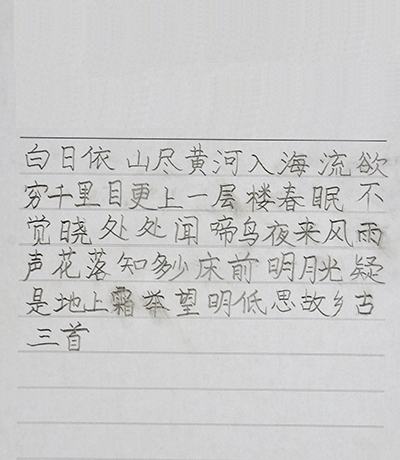 白日依山尽黄河入海流欲
穷千里目更上一层楼春眠不
觉晓处处闻啼鸟夜来风雨
声花落知多少床前明月光疑
是地上霜举望明低思故乡古
三首